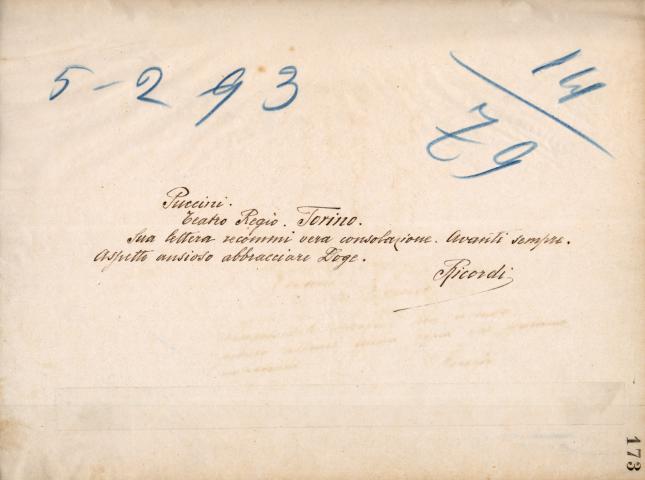 5-2 93
14/79
Puccini.
Teatro Regio. Torino.
Sua lettera recommi vera consolazione. Avanti sempre.
Aspetto ansioso abbracciare Doge.
Ricordi
173